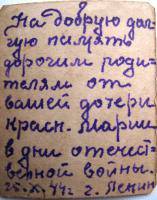 На добрую дол-
гую память
дорогим роди-
телям от
вашей дочери
красн. Марии
в дни отечест-
венной войны.
25.X.44г. г. Ленин